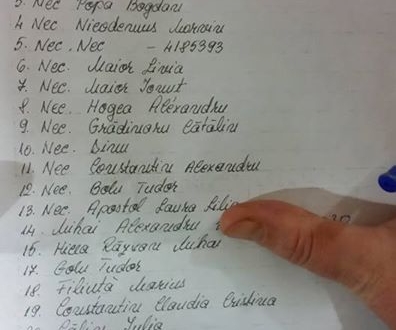 3. Nec Popa Bogdan
4 Nec Nicodemus Marvin
5. Nec. Nec - 4185393
6. Nec. Maior Livia
7. Nec. Maior Ionut
8. Nec. Hogea Alexandru
9. Nec. Grădinaru Cătălin
10. Nec. Dinu
11. Nec Constantin Alexandru
12. Nec. Golu Tudor
13. Nec. Apostol Laura
14. Mihai Alexandru
15. Răzvan Mihai
17. Golu Tudor
18. Filiuță Marius
19. Constantin Claudia Cristina
Călin Iulia